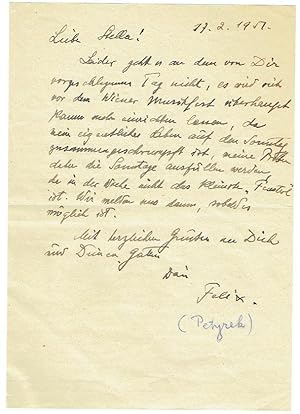 17.2.1951.
Liebe Stella!
Leider geht es an dem von Dir
vorgeschlagenen Tag nicht, es wird sich
vor dem Wiener Musikfest überhaupt
kaum mehr einrichten lassen, da
mein eigentliches Leben auf den Sonntag
zusammengeschrumpft ist, meine
die Sonntage ausfüllen werden,
da in der Woche nicht das kleinste
ist. Wir melden uns dann, sobald es
möglich ist.
Mit herzlichen Grüßen an Dich
und Deinen Gatten
Dein
Felix.
(Petyrek)